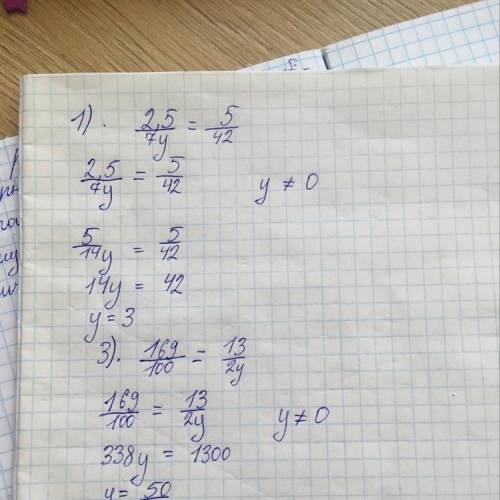 1). 2,5/7y = 5/42
2,5/7y = 5/42 y ≠ 0
5/14y = 5/42
14y = 42
y = 3
3). 169/100 = 13/2y
169/100 = 13/2y y ≠ 0
338y = 1300
y = 50